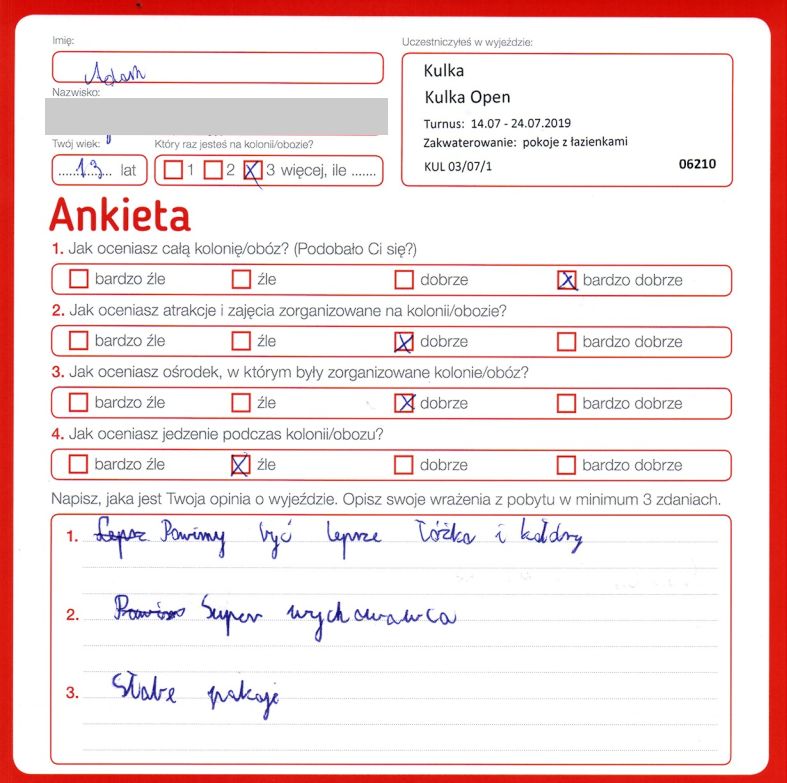 Imię:
Adam
Uczestniczyłeś w wyjeździe:
Kulka
Kulka Open
Turnus: 14.07 - 24.07.2019
Zakwaterowanie: pokoje z łazienkami
KUL 03/07/1 06210
Nazwisko:
Twój wiek:
......13... lat
Który raz jesteś na kolonii/obozie?
1 2 3 więcej, ile .......
Ankieta
1. Jak oceniasz całą kolonię/obóz? (Podobało Ci się?)
bardzo źle źle dobrze bardzo dobrze
2. Jak oceniasz atrakcje i zajęcia zorganizowane na kolonii/obozie?
bardzo źle źle dobrze bardzo dobrze
3. Jak oceniasz ośrodek, w którym były zorganizowane kolonie/obóz?
bardzo źle źle dobrze bardzo dobrze
4. Jak oceniasz jedzenie podczas kolonii/obozu?
bardzo źle źle dobrze bardzo dobrze
Napisz, jaka jest Twoja opinia o wyjeździe. Opisz swoje wrażenia z pobytu w minimum 3 zdaniach.
1. Lepsz Powinny być lepsze łóżka i kołdry
2. Super wychowawca
3. Słabe pokoje